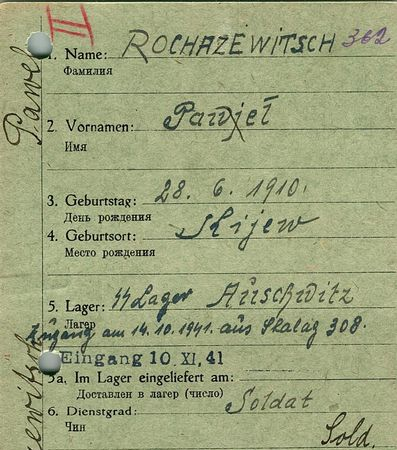 II
1. Name: ROCHAZEWITSCH 302
Фамилия
Pawel
2. Vornamen: Pawjeł
Имя
3. Geburtstag: 28. 6. 1910.
День рождения
4. Geburtsort: Kijew
Место рождения
5. Lager: SS Lager Auschwitz
Лагерь
Zugang am 14.10.1941. aus Stalag 308.
Eingang 10 XI, 41
5a, Im Lager eingeliefert am:
Доставлен в лагер (число)
6. Dienstgrad: Soldat
Чин
Sold.
ewitsch